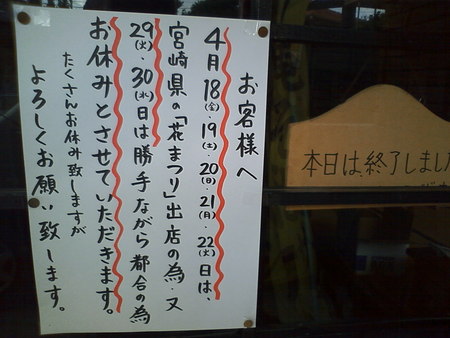 お客様へ
4月18(金)、19(土)、20(日)、21(月)、22(火)日は、
宮崎県の「花まつり」出店の為、又
29(火)、30(水)日は勝手ながら都合の為
お休みとさせていただきます。
たくさんお休み致しますが
よろしくお願い致します。
本日は、終了しまし